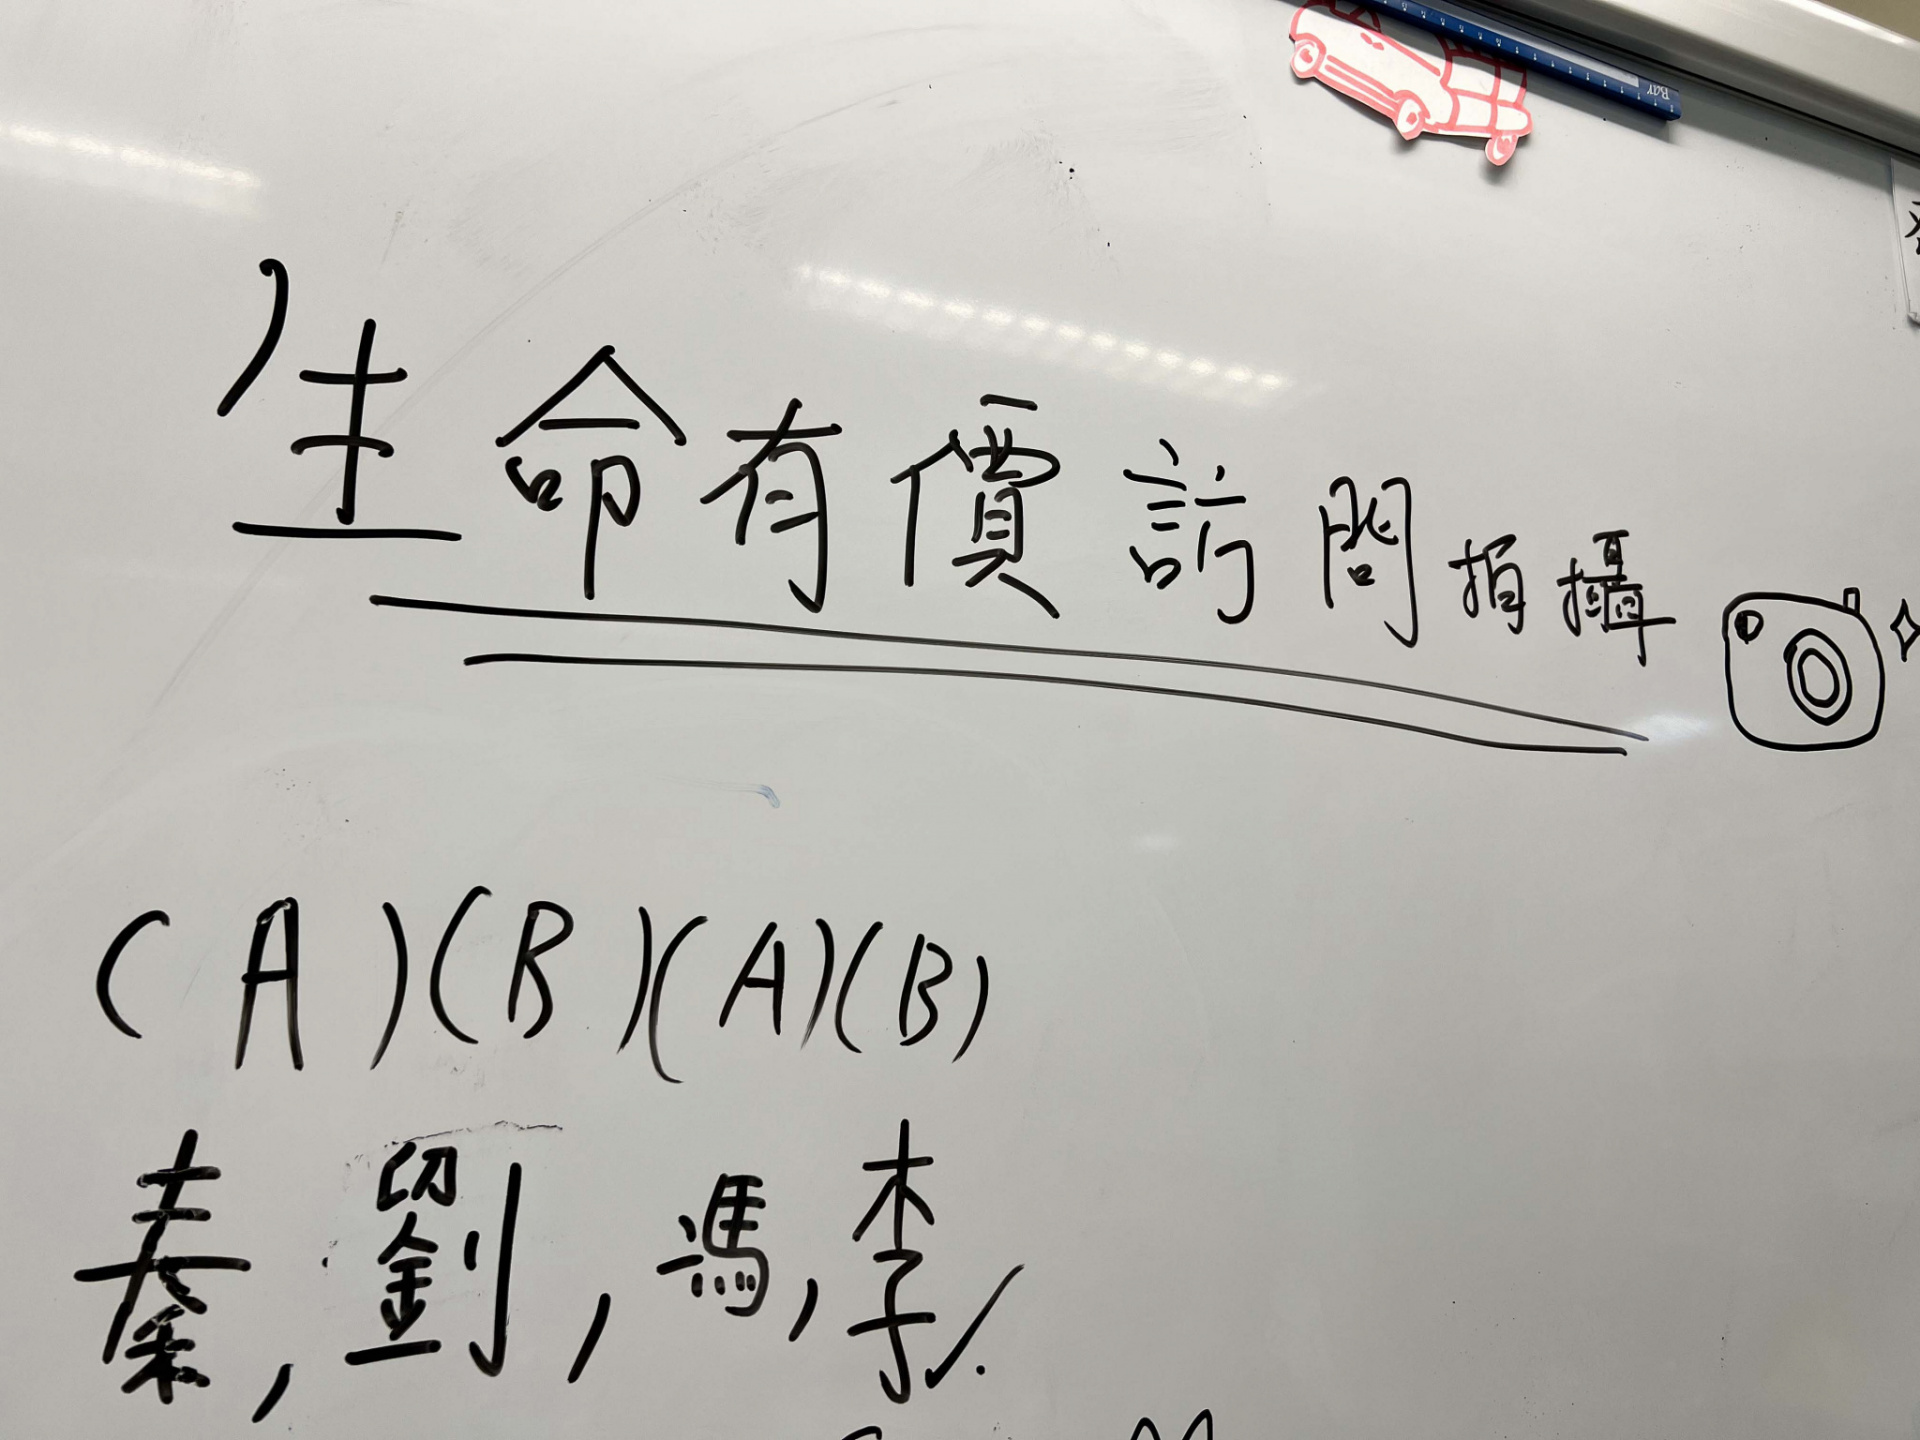 生命有價訪問拍攝
(A)(B)(A)(B)
秦,劉,馮,李✓.